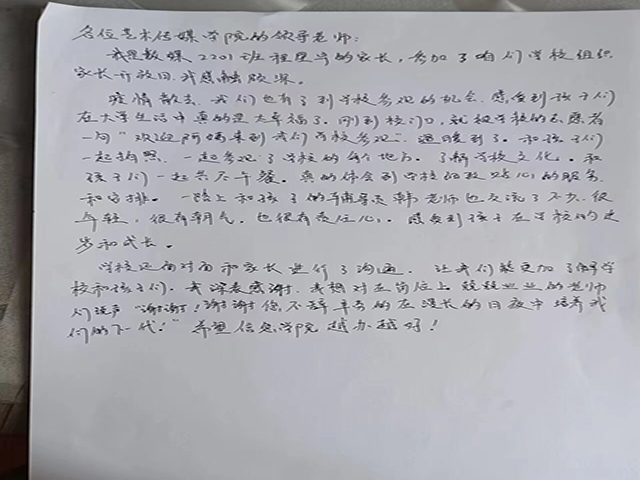 各位艺术传媒学院的领导老师：
我是数媒2201班程星宇的家长，参加了咱们学校组织
家长开放日，我感触颇深。
疫情散去，我们也有了到学校参观的机会，感受到孩子们
在大学生活中真的是太幸福了。刚到校门口，就被学校的志愿者
一句“欢迎阿姨来到我们学校参观”温暖到了。和孩子们
一起拍照，一起参观了学校的每个地方，了解学校文化，和
孩子们一起共尽午餐。真的体会到学校细致贴心的服务
和安排。一路上和孩子的辅导员韩老师也交流了不少，很
年轻，很有朝气，也很有责任心。感受到孩子在学校的进
步和成长。
学校还面对面和家长进行了沟通，让我们能更加了解学
校和孩子们。我深表感谢，我想对在岗位上兢兢业业的老师
们说声“谢谢！谢谢您不辞辛劳的在漫长的日夜中培养我
们的下一代！”希望信息学院越办越好！